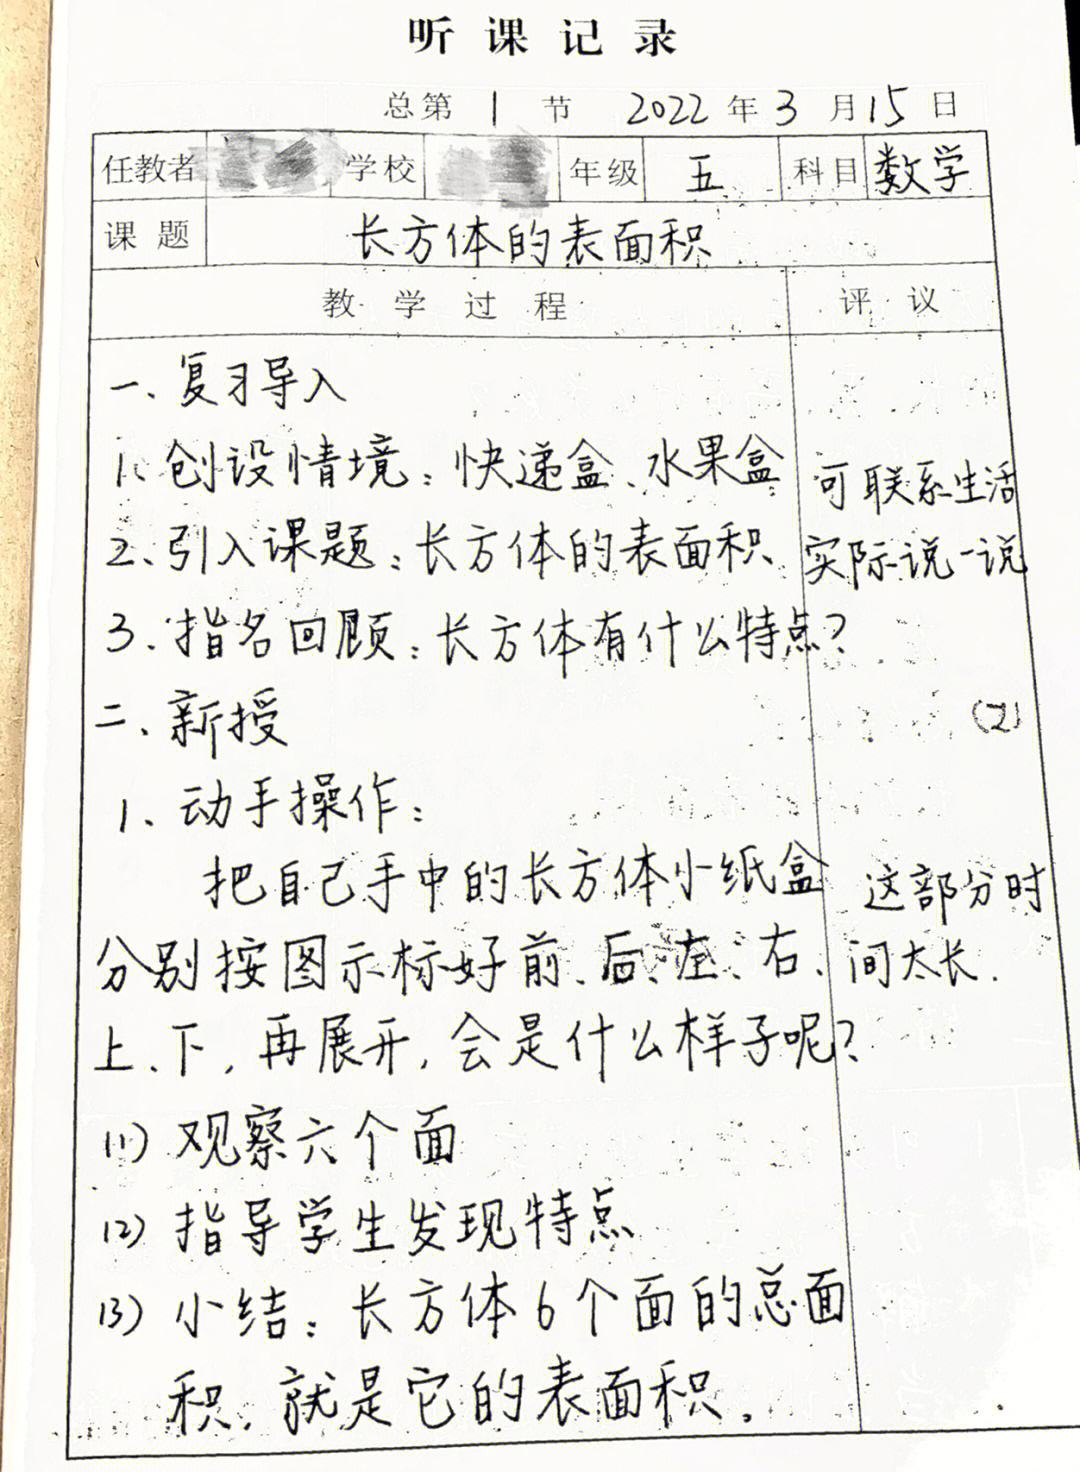 听课记录
总第 1 节 2022年3月15日
任教者 学校 年级 五 科目 数学
课题 长方体的表面积
教学过程 评议
一、复习导入
1、创设情境：快递盒、水果盒
可联系生活
2、引入课题：长方体的表面积
实际说一说
3、指名回顾：长方体有什么特点？
二、新授
1、动手操作：
把自己手中的长方体小纸盒
这部分时
分别按图示标好前、后、左、右、
间太长.
上、下，再展开，会是什么样子呢？
(1) 观察六个面
(2) 指导学生发现特点
(3) 小结：长方体6个面的总面
积，就是它的表面积。